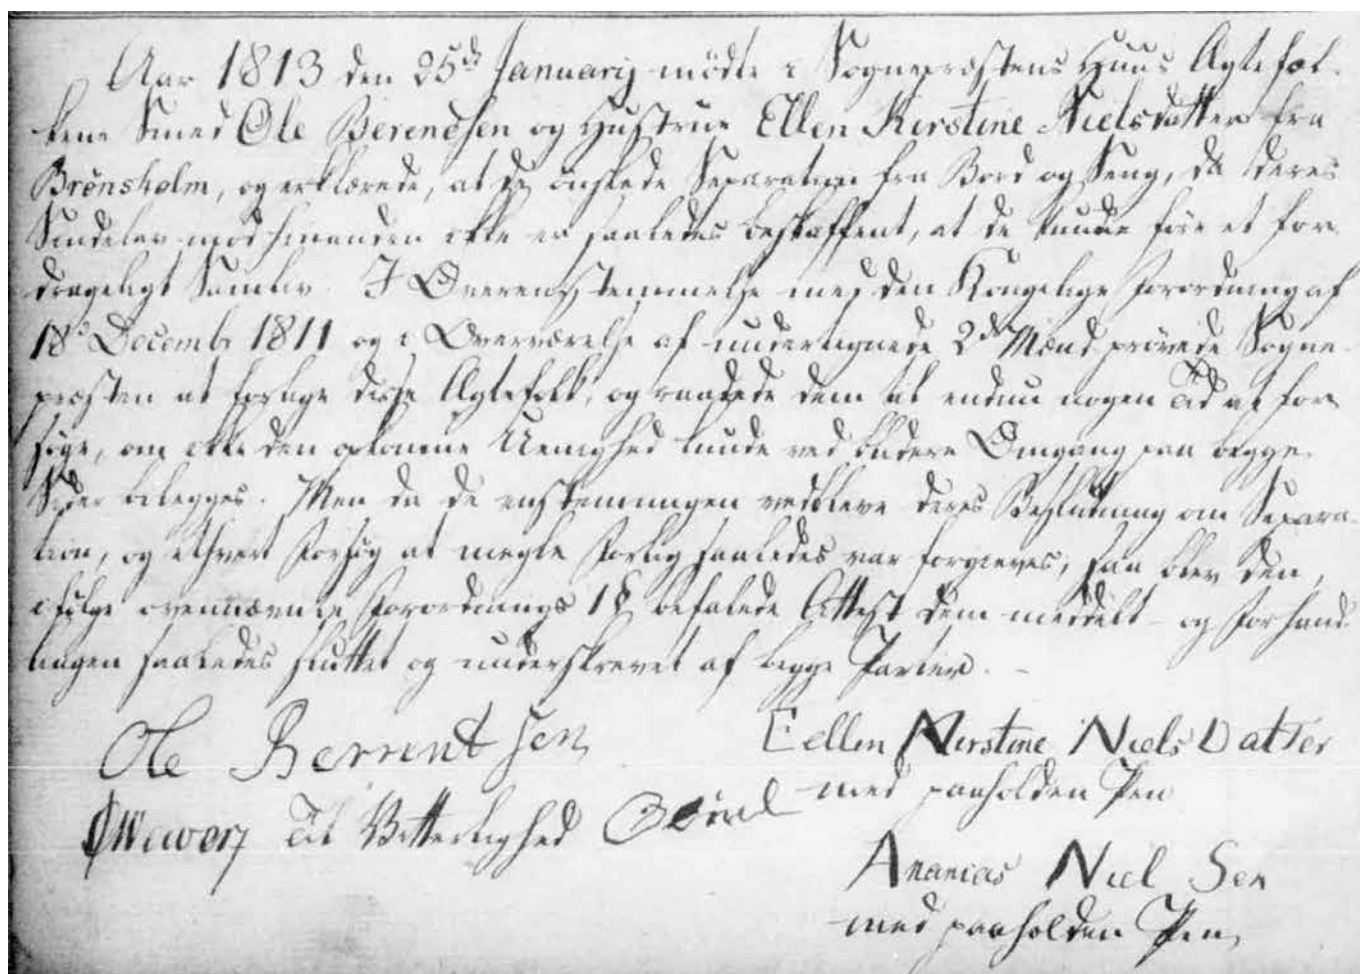 Aar 1813 den 25de Januarij mødte i Sognepræstens Huus Ægtefol-
kene Smed Ole Berendsen og Hustrue Ellen Kirstine Nielsdatter fra
Brønsholm, og erklærede, at de ønskede Separation fra Bord og Seng, da deres
Sindelav mod hinanden ikke er saaledes beskaffent, at de kunde føre et for-
drageligt Samliv. I Overensstemmelse med den Kongelige Forordning af
18de Decembr 1811 og i Overværelse af undertegnede 2de Mænd prøvede Sogne-
præsten at forlige disse Ægtefolk, og raadede dem til endnu nogen Tid at for-
søge, om ikke den opkomne Uenighed kunde ved bedere Omgang paa begge
Sider bilegges. Men da de enstemmingen vedbleve deres Beslutning om Separa-
tion, og ethvert Forsøg at megle Forlig saaledes var forgieves, saa blev den,
ifølge ovennævnte Forordnings 1 § befalede Attest dem meddelt - og Forhand-
lingen saaledes sluttet og underskrevet af begge Parter. -
Ole Berrentsen Eellen Kirstine NielsDatter
med paaholden Pen
Til Vitterlighed
Ananias Niel Sen
med paaholden Pen